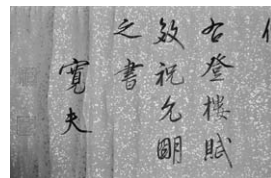 右登樓賦
效祝允明
之書
寬夫